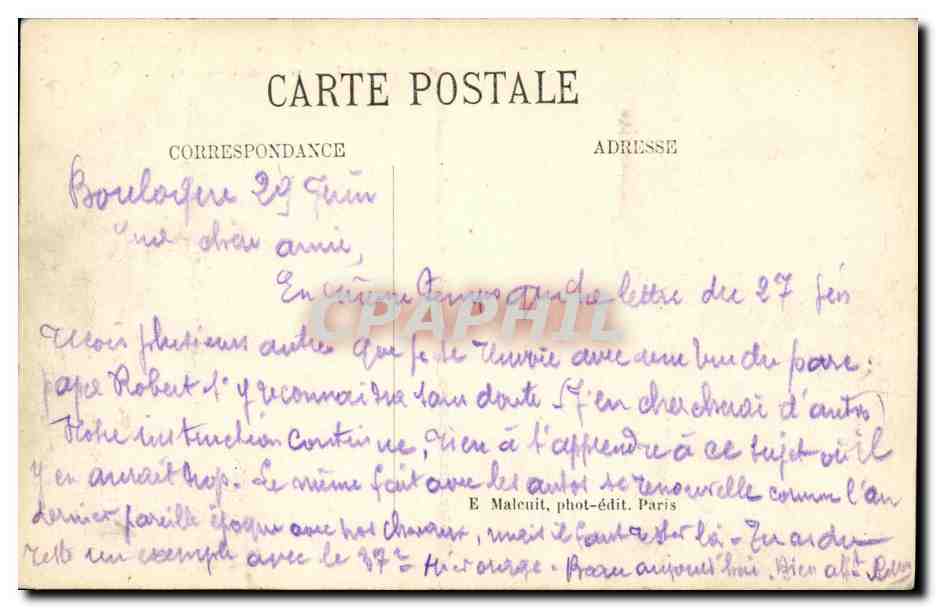 CARTE POSTALE
CORRESPONDANCE
ADRESSE
Boulogne 29 Juin
chère amie,
En même temps que ta lettre du 27 j'en
reçois plusieurs autres que je te renvoie avec une vue du parc :
papa Robert s'y reconnaitra sans doute - (J'en chercherai d'autres)
Notre instruction continue, rien à t'apprendre à ce sujet où il
y en aurait trop. Le même fait avec les autos se renouvelle comme l'an
dernier pareille époque avec nos chevaux, mais il faut rester là - Tu as du
reste un exemple avec le 37e - Hier orage - Beau aujourd'hui. Bien aff.t
E Malcuit, phot-édit. Paris
CPAPHIL